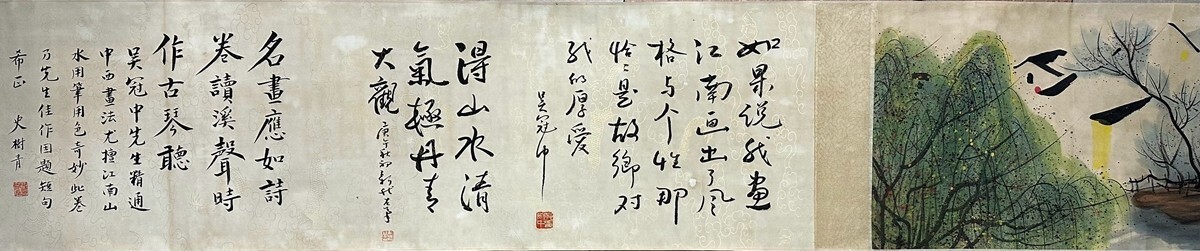 如果说我画
江南画出了风
格与个性那
恰恰是故乡对
我的厚爱
吴冠中
得山水清
氣極丹青
大觀
名畫應如詩
卷讀溪聲時
作古琴聽
吴冠中先生精通
中西畫法尤擅江南山
水用筆用色奇妙此卷
乃先生佳作因題短句
希正 史樹青